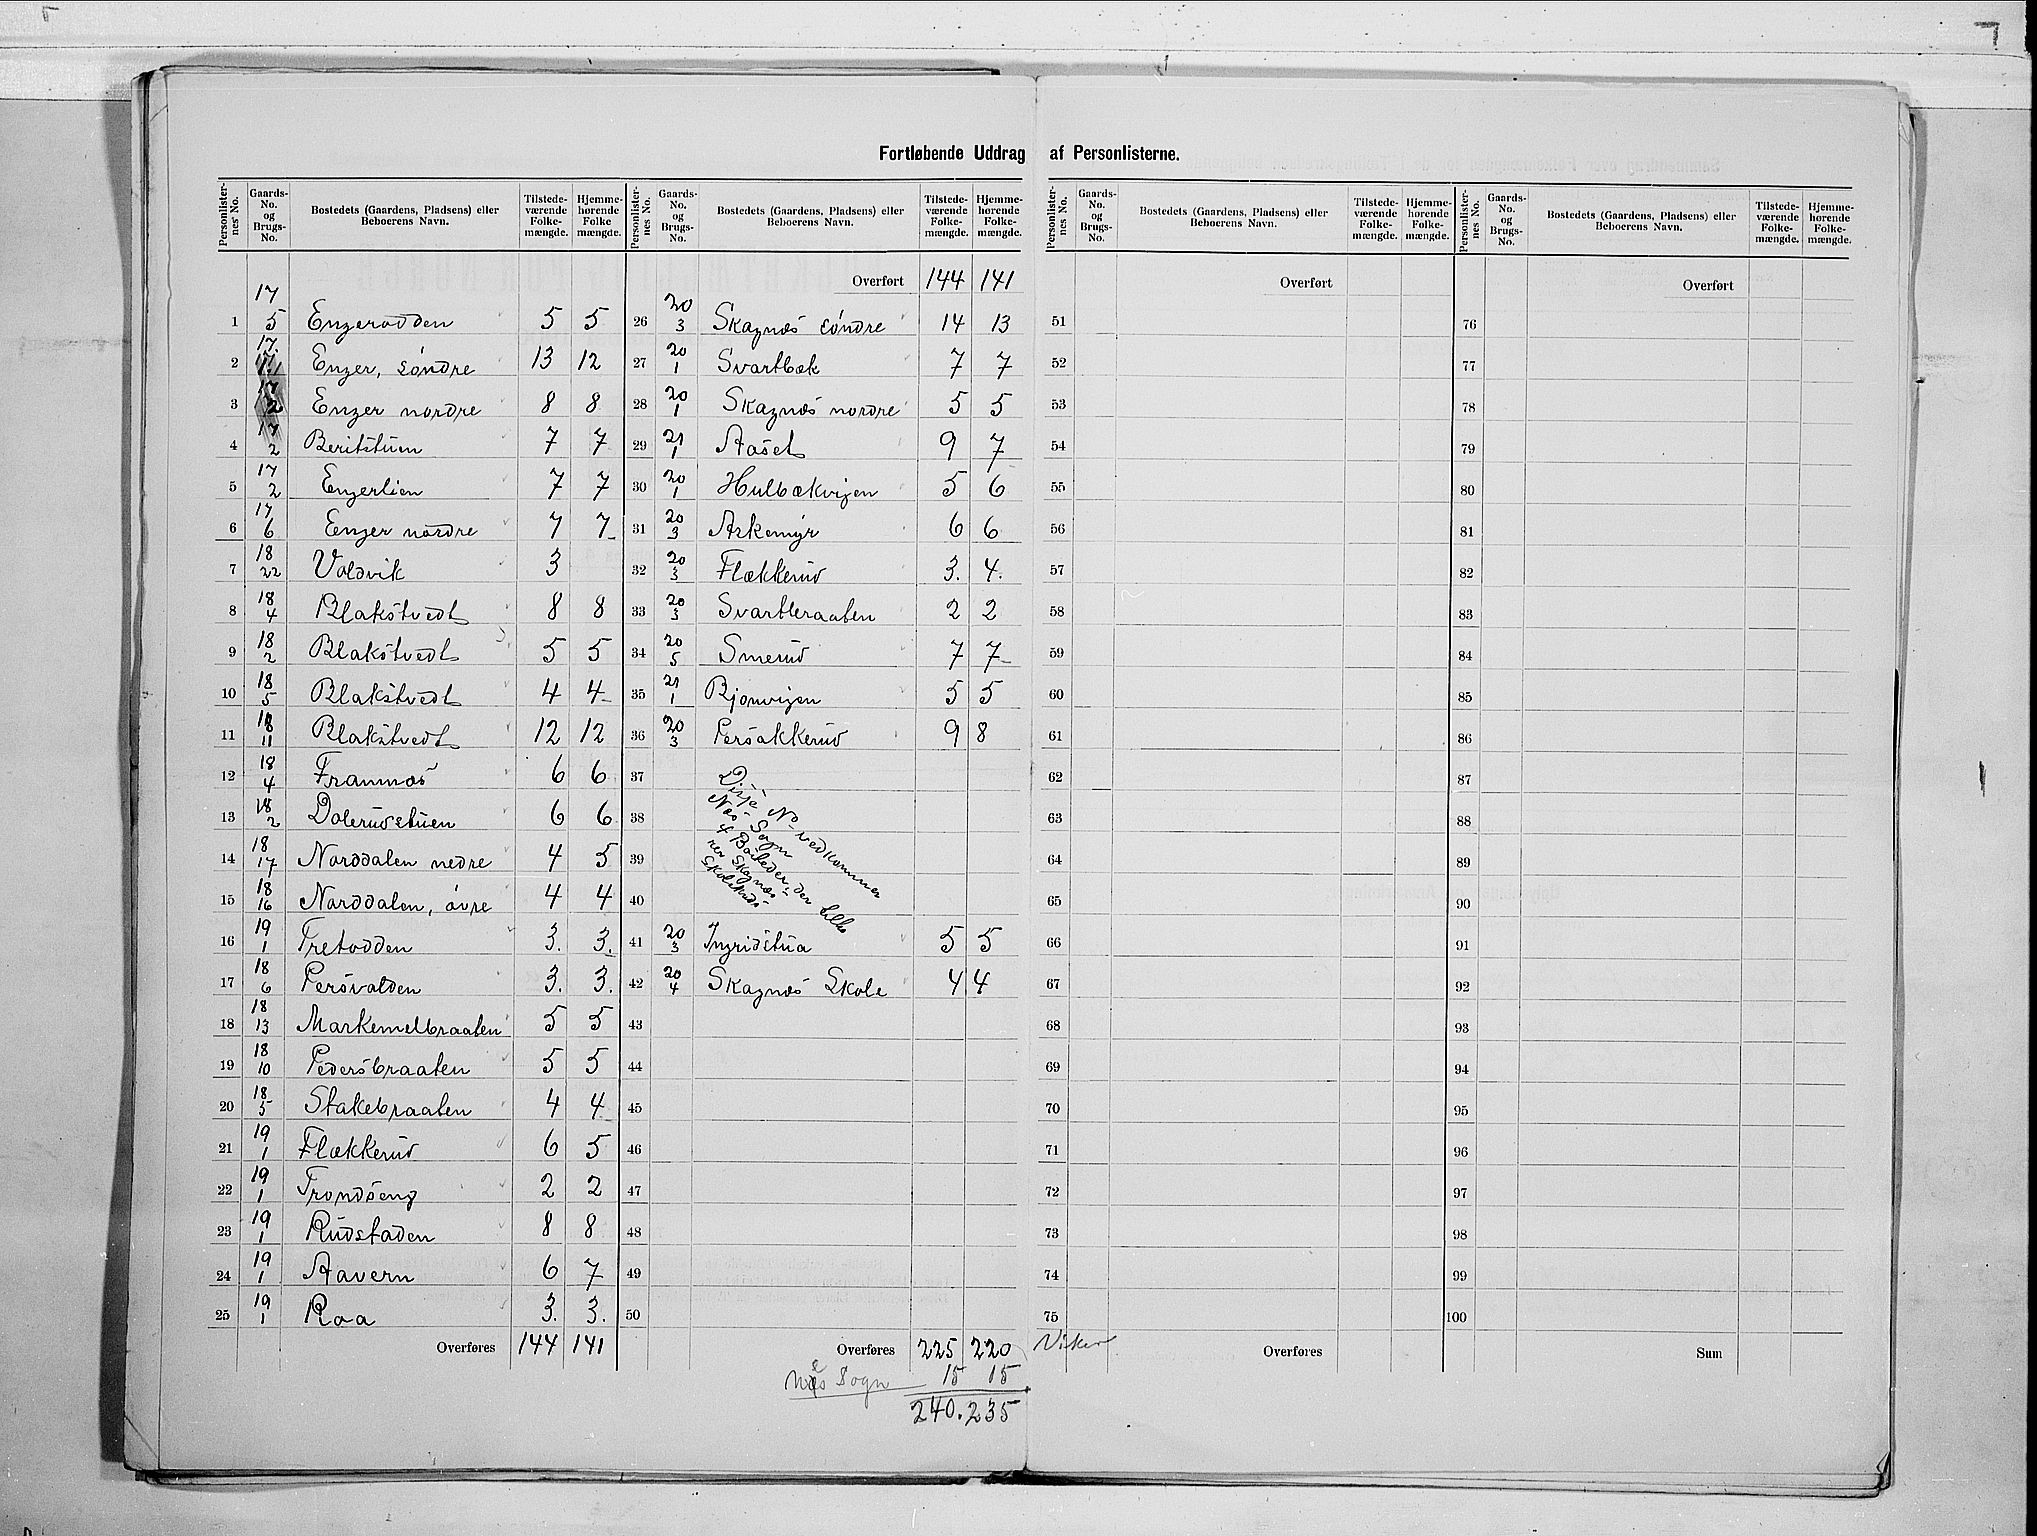 Fortløbende Uddrag af Personlisterne.
Personlister-nes No. Gaards-No. og Brugs-No. Bostedets (Gaardens, Pladsens) eller Beboerens Navn. Tilstede-værende Folke-mængde. Hjemme-hørende Folke mængde.
1 17/5 Engerodden 5 5
2 17/1 Enger, söndre 13 12
3 17/2 Enger nordre 8 8
4 17/2 Beritstuen 7 7
5 17/2 Engerlien 7 7
6 17/6 Enger nordre 7 7
7 18/22 Valdvik 3
8 18/4 Blakstvedt 8 8
9 18/2 Blakstvedt 5 5
10 18/5 Blakstvedt 4 4
11 18/11 Blakstvedt 12 12
12 18/4 Framnæs 6 6
13 18/2 Dolerudstuen 6 6
14 18/17 Norddalen nedre 4 5
15 18/16 Norddalen, övre 4 4
16 19/1 Tretodden 3. 3.
17 18/6 Persvolden 3. 3.
18 18/13 Markemelbraaten 5 5
19 18/10 Pedersbraaten 5 5
20 18/5 Stakebraaten 4 4
21 19/1 Flækkerud 6 5
22 19/1 Trondseng 2 2
23 19/1 Rudstaden 8 8
24 19/1 Aavern 6 7
25 19/1 Roa 3. 3.
Overføres 144 141
Personlister-nes No. Gaards-No. og Brugs-No. Bostedets (Gaardens, Pladsens) eller Beboerens Navn. Tilstede-værende Folke-mængde. Hjemme-hørende Folke-mængde.
Overført 144 141
26 20/3 Skagnæs söndre 14 13
27 20/1 Svartbæk 7 7
28 20/1 Skagnæs nordre 5 5
29 21/1 Aaset 9 7
30 20/1 Hulbækvigen 5 6
31 20/3 Askemyr 6 6
32 20/3 Flækkerud 3. 4.
33 20/3 Svartleraaten 2 2
34 20/5 Smerud 7 7
35 21/1 Bjonvigen 5 5
36 20/3 Persakkerud 9 8
37
38
39
40
Disse No vedkommer
Næs Sogn
4 Bosteder, der tilhö
rer Skagnæs
Skolekreds
41 20/3 Ingridstua 5 5
42 20/4 Skagnæs Skole 4 4
43
44
45
46
47
48
49
50
Overføres 225 220
Næs Sogn 15 15
240. 235
Personlister-nes No. Gaards-No. og Brugs-No. Bostedets (Gaardens, Pladsens) eller Beboerens Navn. Tilstede-værende Folke-mængde. Hjemme-hørende Folke-mængde.
Overført
51
52
53
54
55
56
57
58
59
60
61
62
63
64
65
66
67
68
69
70
71
72
73
74
75
Viker
Overføres
Personlister-nes No. Gaards-No. og Brugs-No. Bostedets (Gaardens, Pladsens) eller Beboerens Navn. Tilstede-værende Folke-mængde. Hjemme-hørende Folke-mængde.
Overført
76
77
78
79
80
81
82
83
84
85
86
87
88
89
90
91
92
93
94
95
96
97
98
99
100
Sum